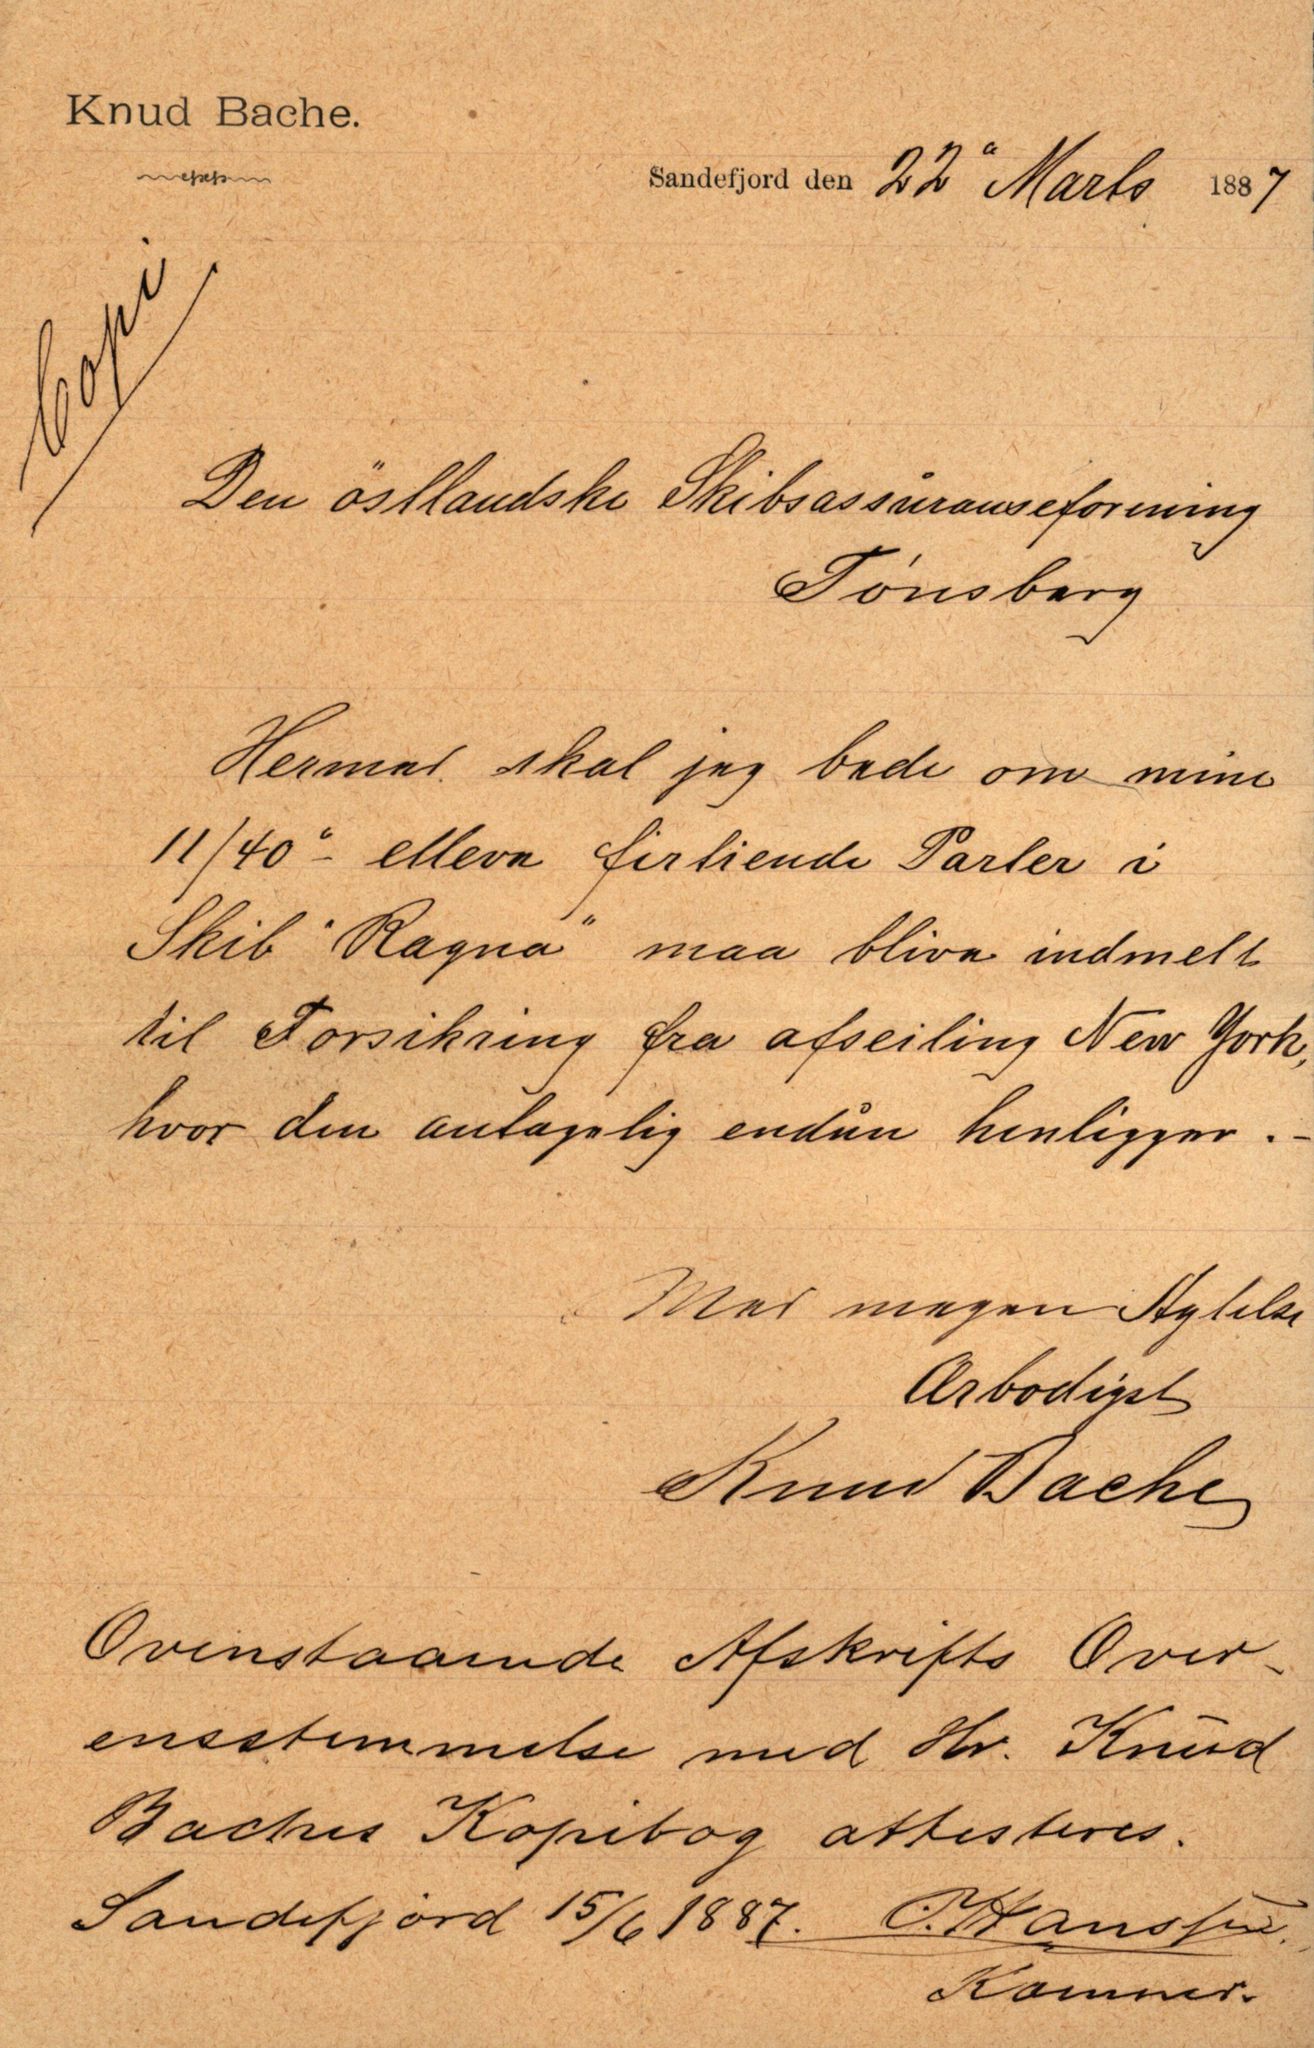 Knud Bache.
Sandefjord den 22ᵃ Marts 1887
Copi
Den östlandske Skibsassuranseforening
Tønsberg
Hermed skal jeg bede om mine
11/40ᵃ - elleve firtiende Parter i
Skib "Ragna" maa blive indmelt
til Forsikring fra afseiling New York,
hvor den antagelig endnu henligger. -
Med megen Agtelse
Ærbødigst
Knud Bache
Ovenstaaende Afskrifts Over-
ensstemmelse med Hr. Knud
Baches Kopibog attesteres.
Sandefjord 15/6 1887. P. Hanssen.